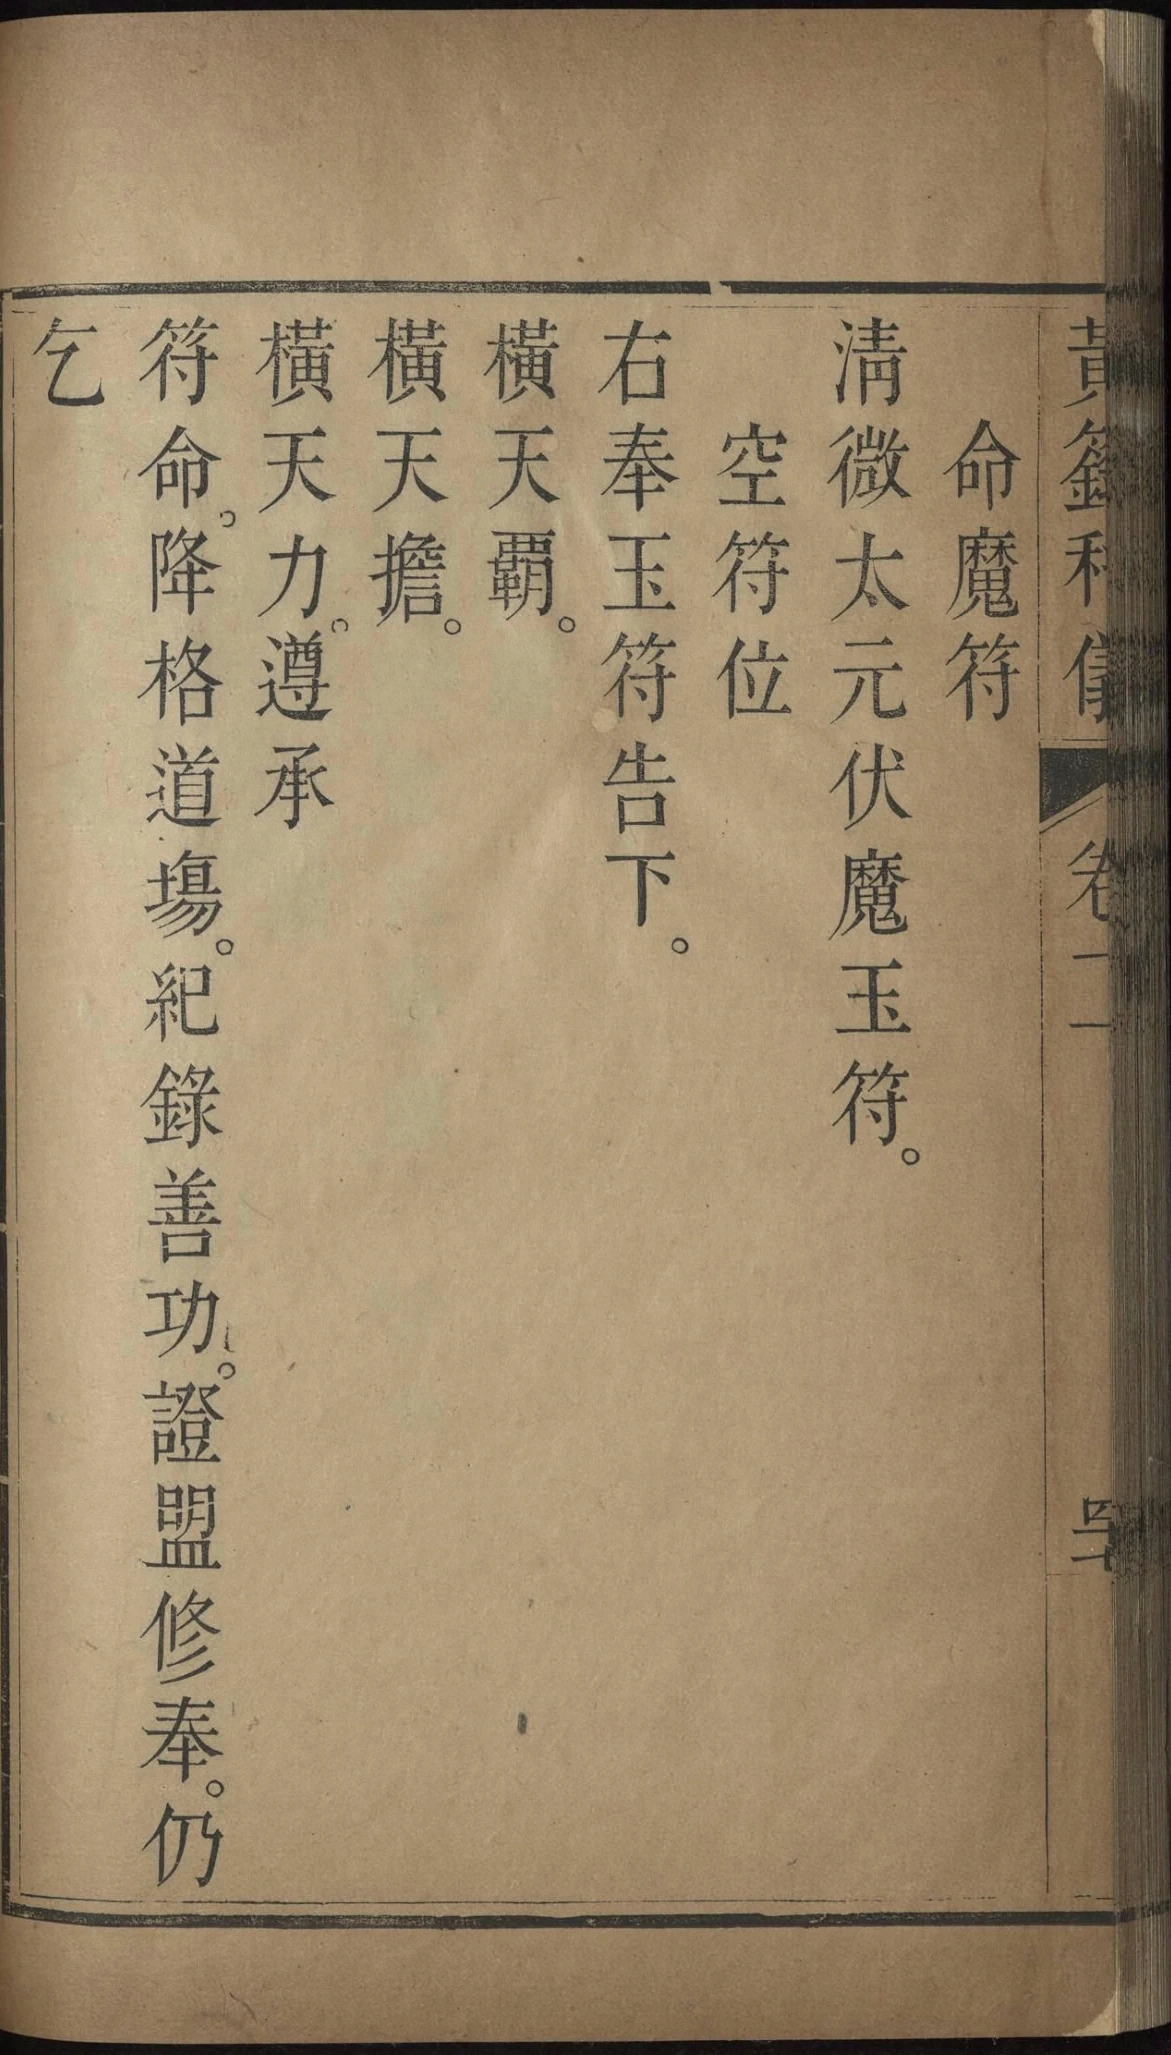 黃籙科儀 卷十一 四十
命魔符
淸微太元伏魔玉符。
空符位
右奉玉符告下。
橫天覇。
橫天擔。
橫天力。遵承
符命。降格道塲。紀錄善功。證盟修奉。仍
乞